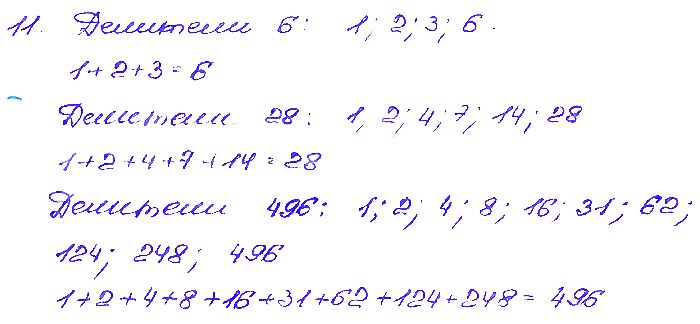 11. Делители 6: 1; 2; 3; 6.
1+2+3=6
Делители 28: 1, 2; 4; 7; 14; 28
1+2+4+7+14=28
Делители 496: 1; 2; 4; 8; 16; 31; 62;
124; 248; 496
1+2+4+8+16+31+62+124+248= 496